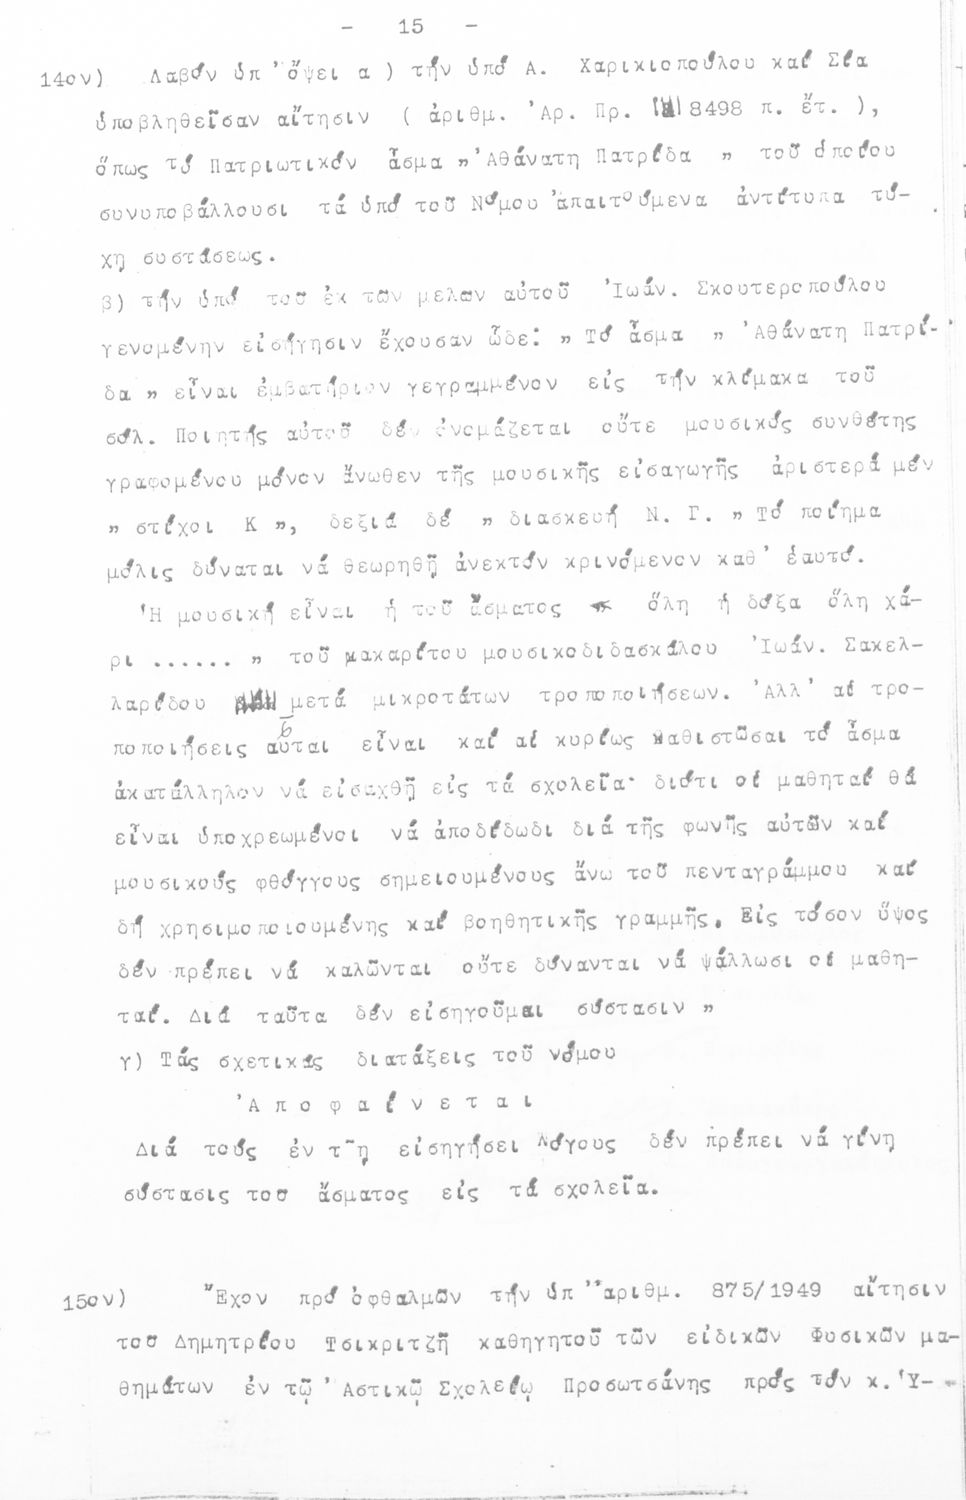 - 15 -
14ον) Λαβόν ὑπ' ὄψει α ) τήν ὑπό Α. Χαρικιοπούλου καί Σία
ὑποβληθεῖσαν αἴτησιν ( ἀριθμ. 'Αρ. Πρ. 8498 π. ἔτ. ),
ὅπως τό Πατριωτικόν ἆσμα „'Αθάνατη Πατρίδα „ τοῦ ὁποίου
συνυποβάλλουσι τά ὑπό τοῦ Νόμου ἀπαιτούμενα ἀντίτυπα τύ-
χῃ συστάσεως.
β) τήν ὑπό τοῦ ἐκ τῶν μελῶν αὐτοῦ 'Ιωάν. Σκουτεροπούλου
γενομένην εἰσήγησιν ἔχουσαν ὧδε: „ Τό ἆσμα „ 'Αθάνατη Πατρί-
δα „ εἶναι ἐμβατήριον γεγραμμένον εἰς τήν κλίμακα τοῦ
σόλ. Ποιητής αὐτοῦ δέν ὀνομάζεται οὔτε μουσικός συνθέτης
γραφομένου μόνον ἄνωθεν τῆς μουσικῆς εἰσαγωγῆς ἀριστερά μέν
„ στίχοι Κ „, δεξιά δέ „ διασκευή Ν. Γ. „ Τό ποίημα
μόλις δύναται νά θεωρηθῇ ἀνεκτόν κρινόμενον καθ' ἑαυτό.
'Η μουσική εἶναι ἡ τοῦ ἄσματος „ ὅλη ἡ δόξα ὅλη χά-
ρι ...... „ τοῦ μακαρίτου μουσικοδιδασκάλου 'Ιωάν. Σακελ-
λαρίδου μετά μικροτάτων τροποποιήσεων. 'Αλλ' αἱ τρο-
ποποιήσεις αὗται εἶναι καί αἱ κυρίως καθιστῶσαι τό ἆσμα
ἀκατάλληλον νά εἰσαχθῇ εἰς τά σχολεῖα· διότι οἱ μαθηταί θά
εἶναι ὑποχρεωμένοι νά ἀποδίδωδι διά τῆς φωνῆς αὐτῶν καί
μουσικούς φθόγγους σημειουμένους ἄνω τοῦ πενταγράμμου καί
δή χρησιμοποιουμένης καί βοηθητικῆς γραμμῆς. Εἰς τόσον ὕψος
δέν πρέπει νά καλῶνται οὔτε δύνανται νά ψάλλωσι οἱ μαθη-
ταί. Διά ταῦτα δέν εἰσηγοῦμαι σύστασιν „
γ) Τάς σχετικάς διατάξεις τοῦ νόμου
'Α π ο φ α ί ν ε τ α ι
Διά τούς ἐν τῇ εἰσηγήσει λόγους δέν πρέπει νά γίνῃ
σύστασις του ἄσματος εἰς τά σχολεῖα.
15ον) Ἔχον πρό ὀφθαλμῶν τήν ὑπ' ἀριθμ. 875/1949 αἴτησιν
τοῦ Δημητρίου Τσικριτζῆ καθηγητοῦ τῶν εἰδικῶν Φυσικῶν μα-
θημάτων ἐν τῷ 'Αστικῷ Σχολείῳ Προσωτσάνης πρός τόν κ. 'Υ-